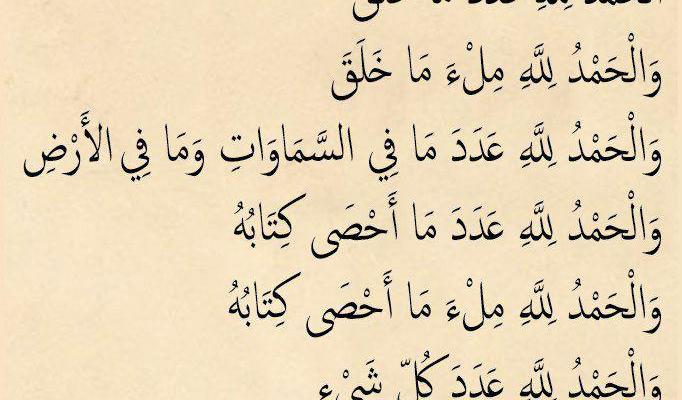 الْحَمْدُ لِلَّهِ عَدَدَ مَا خَلَقَ
وَالْحَمْدُ لِلَّهِ مِلْءَ مَا خَلَقَ
وَالْحَمْدُ لِلَّهِ عَدَدَ مَا فِي السَّمَاوَاتِ وَمَا فِي الأَرْضِ
وَالْحَمْدُ لِلَّهِ عَدَدَ مَا أَحْصَى كِتَابُهُ
وَالْحَمْدُ لِلَّهِ مِلْءَ مَا أَحْصَى كِتَابُهُ
وَالْحَمْدُ لِلَّهِ عَدَدَ كُلِّ شَيْءٍ